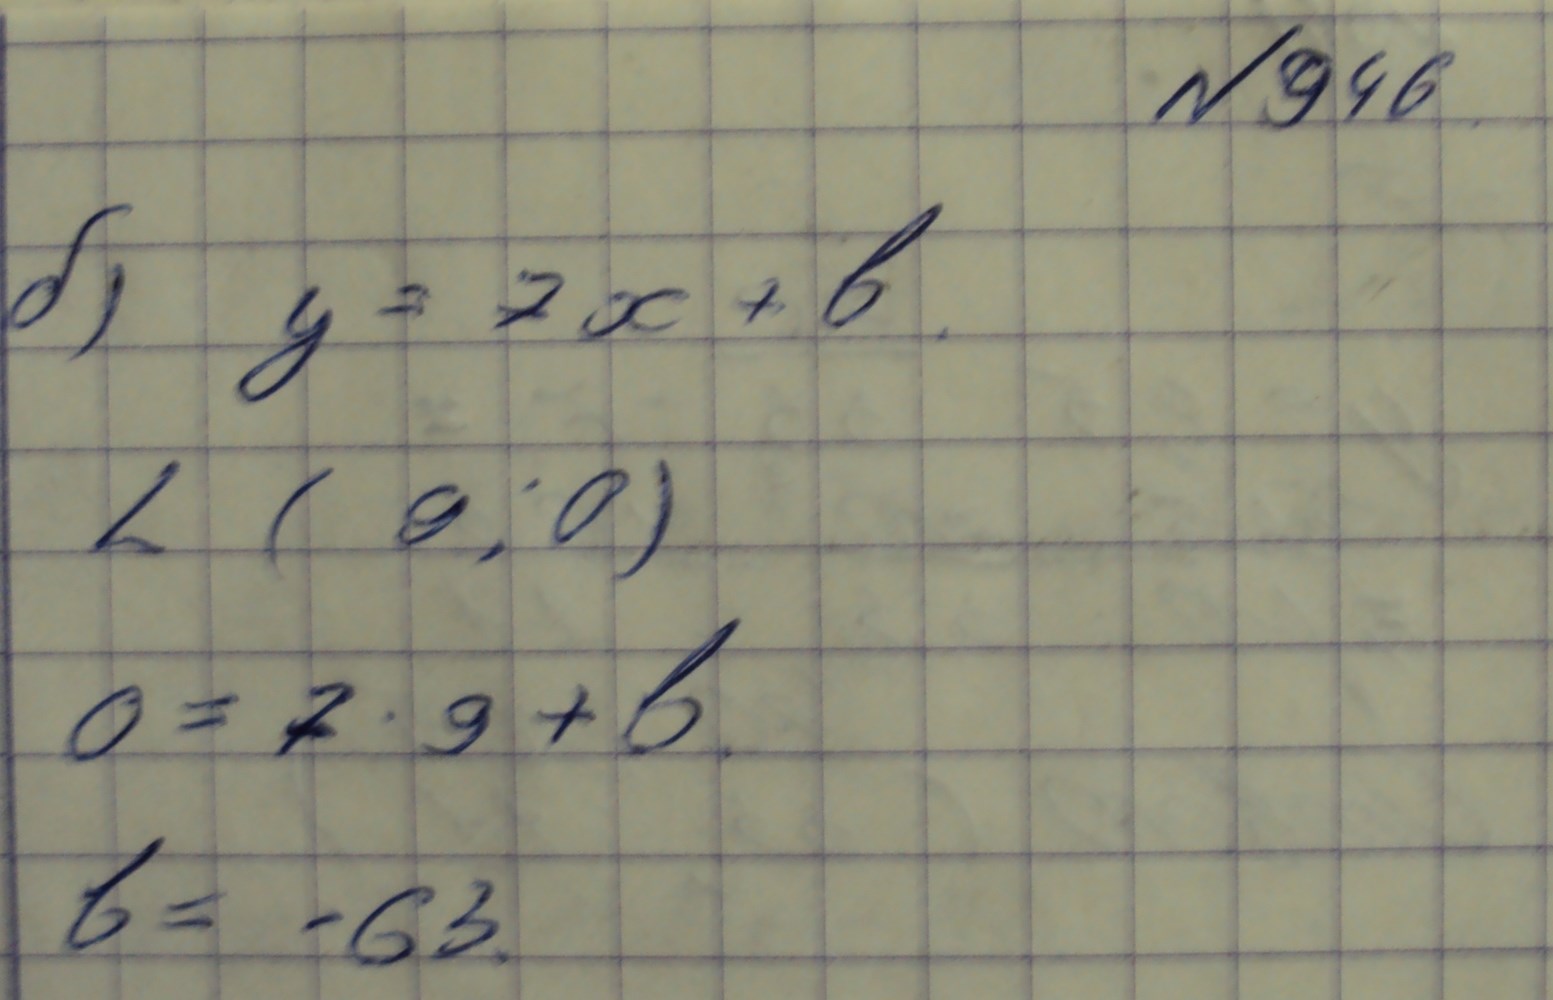 №946.
б) y = 7x + b.
L (9; 0)
0 = 7 · 9 + b.
b = -63.